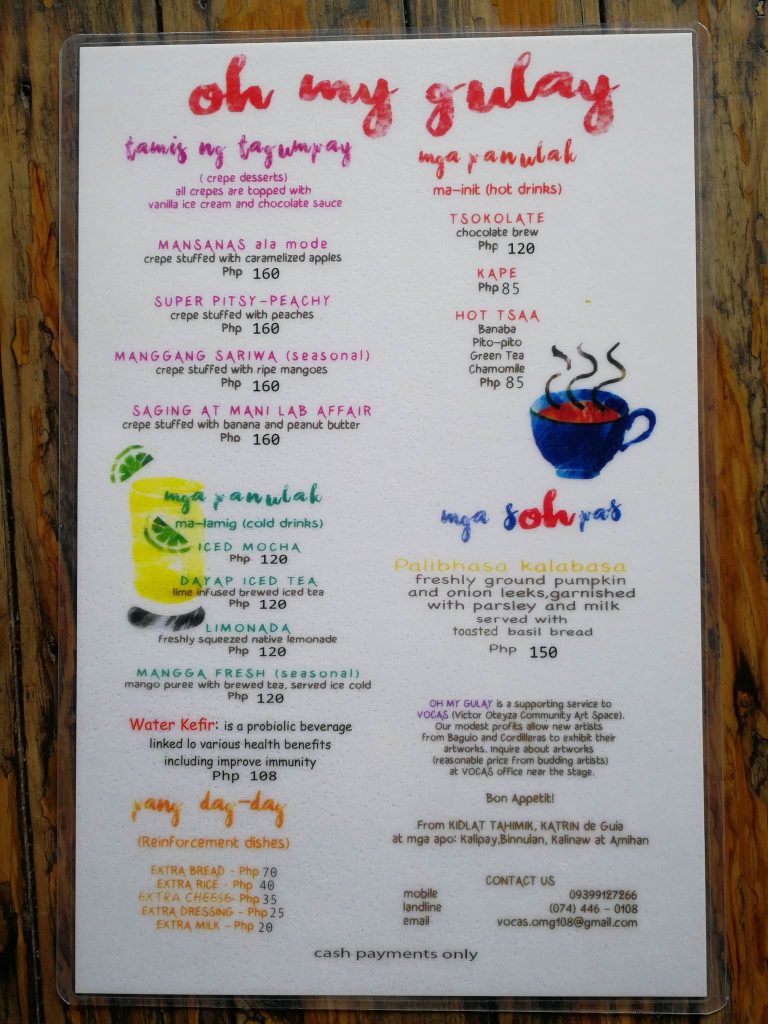 oh my gulay
tamis ng tagumpay
( crepe desserts)
all crepes are topped with
vanilla ice cream and chocolate sauce
MANSANAS ala mode
crepe stuffed with caramelized apples
Php 160
SUPER PITSY-PEACHY
crepe stuffed with peaches
Php 160
MANGGANG SARIWA (seasonal)
crepe stuffed with ripe mangoes
Php 160
SAGING AT MANI LAB AFFAIR
crepe stuffed with banana and peanut butter
Php 160
mga panulak
ma-lamig (cold drinks)
ICED MOCHA
Php 120
DAYAP ICED TEA
lime infused brewed iced tea
Php 120
LIMONADA
freshly squeezed native lemonade
Php 120
MANGGA FRESH (seasonal)
mango puree with brewed tea, served ice cold
Php 120
Water Kefir: is a probiolic beverage
linked lo various health benefits
including improve immunity
Php 108
pang dag-dag
(Reinforcement dishes)
EXTRA BREAD - Php 70
EXTRA RICE - Php 40
EXTRA CHEESE- Php 35
EXTRA DRESSING - Php 25
EXTRA MILK - Php 20
mga panulak
ma-init (hot drinks)
TSOKOLATE
chocolate brew
Php 120
KAPE
Php 85
HOT TSAA
Banaba
Pito-pito
Green Tea
Chamomile
Php 85
mga sohpas
Palibhasa kalabasa
freshly ground pumpkin
and onion leeks,garnished
with parsley and milk
served with
toasted basil bread
Php 150
OH MY GULAY is a supporting service to
VOCAS (Victor Oteyza Community Art Space).
Our modest profits allow new artists
from Baguio and Cordilleras to exhibit their
artworks. Inquire about artworks
(reasonable price from budding artists)
at VOCAS office near the stage.
Bon Appetit!
From KIDLAT TAHIMIK, KATRIN de Guia
at mga apo: Kalipay,Binnulan, Kalinaw at Amihan
CONTACT US
mobile 09399127266
landline (074) 446 - 0108
email vocas.omg108@gmail.com
cash payments only